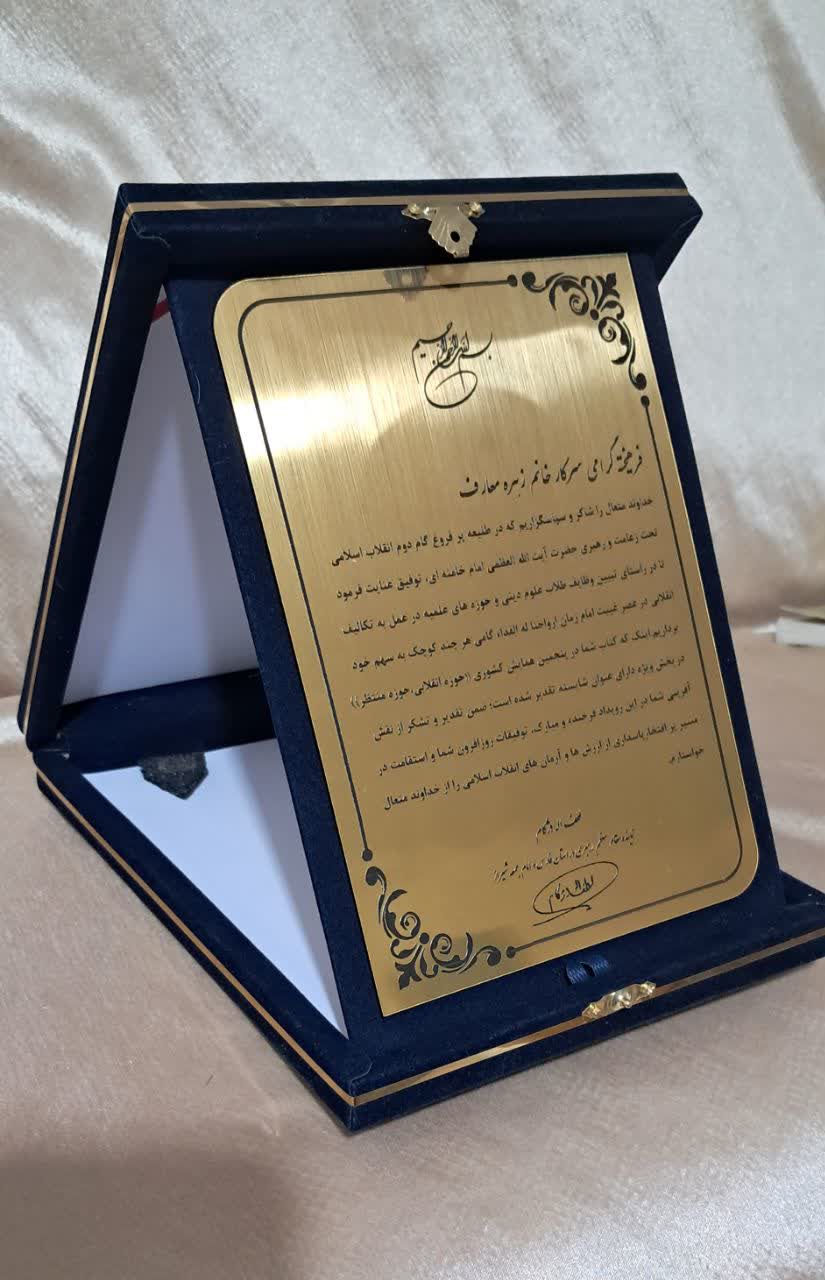 بسم الله الرحمن الرحیم
فرهیختهٔ گرامی سرکار خانم زهره معارف
خداوند متعال را شاکر و سپاسگزاریم که در طلیعه پر فروغ گام دوم انقلاب اسلامی
تحت زعامت و رهبری حضرت آیت الله العظمی امام خامنه ای، توفیق عنایت فرمود
تا در راستای تبیین وظایف طلاب علوم دینی و حوزه های علمیه در عمل به تکالیف
انقلابی در عصر غیبت امام زمان ارواحنا له الفداء گامی هر چند کوچک به سهم خود
برداریم.اینک که کتاب شما در پنجمین همایش کشوری ((حوزه انقلابی،حوزه منتظر))
در بخش ویژه دارای عنوان شایسته تقدیر شده است؛ ضمن تقدیر و تشکر از نقش
آفرینی شما در این رویداد فرخنده و مبارک، توفیقات روزافزون شما و استقامت در
مسیر پر افتخارپاسداری از ارزش ها و آرمان های انقلاب اسلامی را از خداوند متعال
خواستارم.
لطف اله دژکام
نماینده مقام معظم رهبری در استان فارس و امام جمعه شیراز
لطف اله دژکام